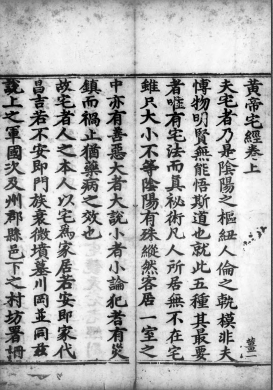 黄帝宅經卷上
夫宅者乃是陰陽之樞紐人倫之軌模非夫
愽物明賢無能悟斯道也就此五種其最要
者唯有宅法而真秘術凡人所居無不在宅
雖只大小不等陰陽有殊縱然客居一室之
中亦有善惡大者大說小者小論犯者有災
鎮而禍止猶藥病之效也
故宅者人之本人以宅為家居若安即家代
昌吉若不安即門族衰微墳墓川岡並同兹
說上之軍國次及州郡縣邑下之村坊署柵